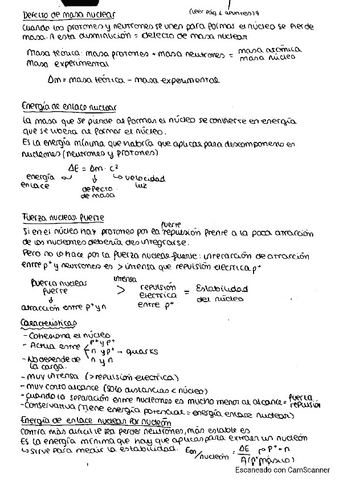 Defecto de masa nuclear
Cuando los protones y neutrones se unen para formar el núcleo se pierde
masa. A esta disminución = defecto de masa nuclear
Masa teórica: masa protones + masa neutrones = masa atómica
Masa experimental masa núcleo
Δm = masa teórica - masa experimental
Energía de enlace nuclear
La masa que se pierde al formar el núcleo se convierte en energía
que se libera al formar el núcleo.
Es la energía mínima que habría que aplicar para descomponerlo en
nucleones (neutrones y protones)
ΔE = Δm · c²
energía velocidad
enlace defecto luz
de masa
Fuerza nuclear fuerte
fuerte
Si en el núcleo hay protones por la repulsión frente a la poca atracción
de los nucleones debería desintegrarse.
Pero no lo hace por la fuerza nuclear fuerte: interacción de atracción
entre p⁺ y neutrones es > intensa que repulsión eléctrica p⁺
fuerza nuclear intensa repulsión
fuerte > eléctrica = Estabilidad
atracción entre p⁺ y n entre p⁺ del núcleo
Características
- Cohesiona el núcleo
- Actúa entre p⁺ y p⁺
n y p⁺ → quarks
- No depende de n y n
la carga.
- muy intensa (> repulsión eléctrica)
- muy corto alcance (solo distancias < núcleo)
- cuando la separación entre nucleones es mucho menor al alcance = fuerza
repulsión
- Conservativa (Tiene energía potencial = energía enlace nuclear)
Energía de enlace nuclear por nucleón
Contra más difícil sea perder neutrones, más estable es
Es la energía mínima que hay que aplicar para extraer un nucleón
→ sirve para medir la estabilidad. Een/nucleón = ΔE p⁺ + n
A (nº másico)
Escaneado con CamScanner